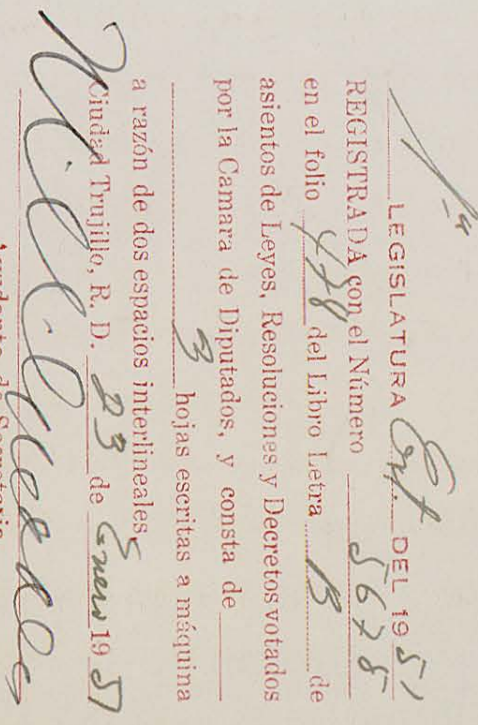 1ª LEGISLATURA Ext. DEL 1951
REGISTRADA con el Número 5678
en el folio 478 del Libro Letra B de
asientos de Leyes, Resoluciones y Decretos votados
por la Camara de Diputados, y consta de
3 hojas escritas a máquina
a razón de dos espacios interlineales.
Ciudad Trujillo, R. D. 23 de Enero 1951
Ayudante de Secretaría